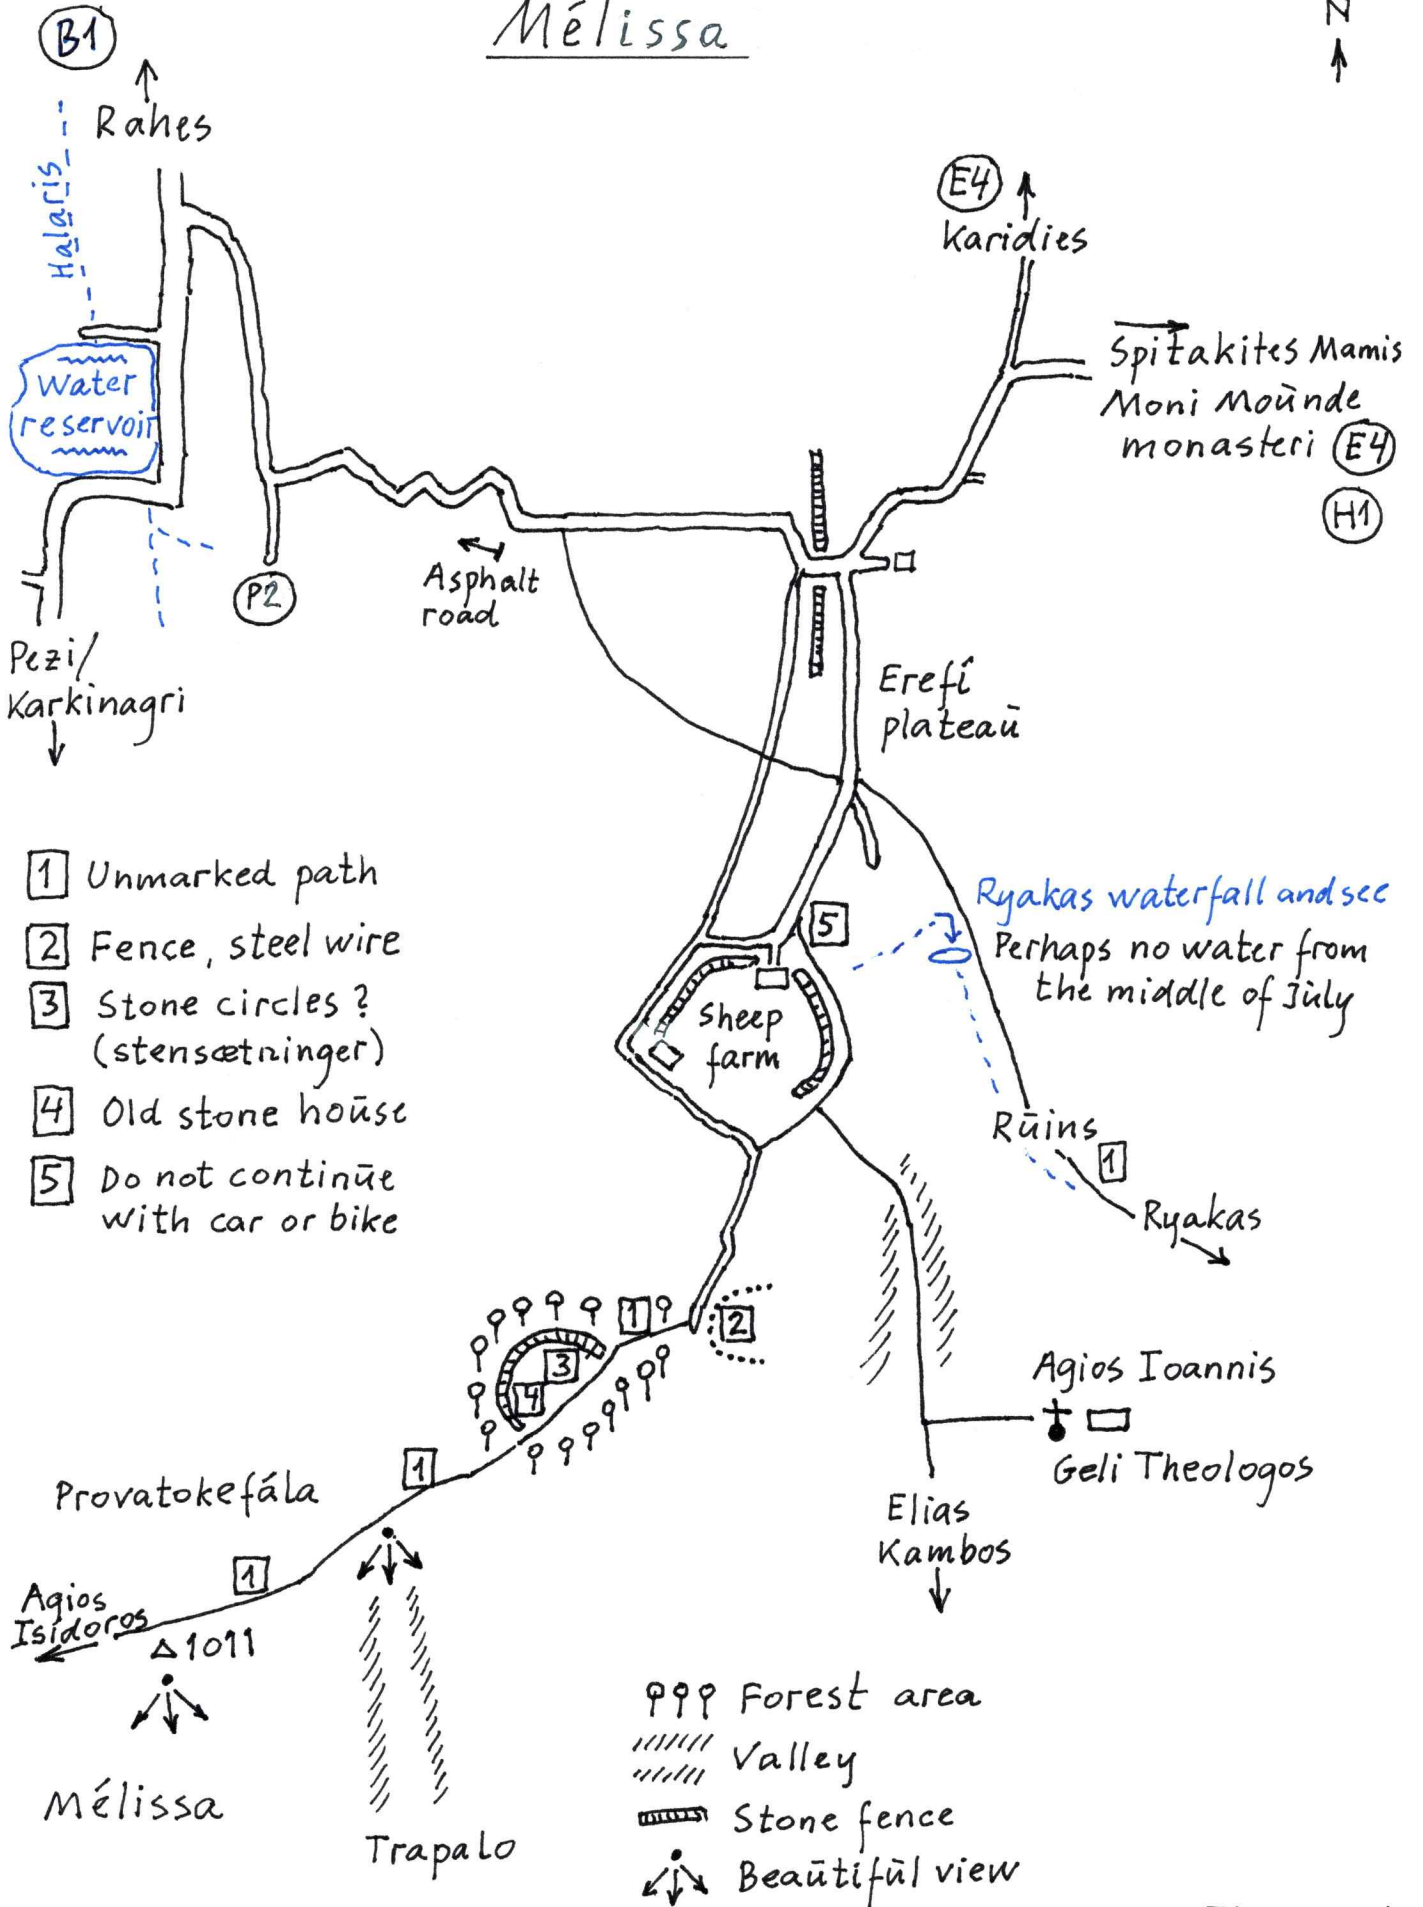 B1
Mélissa
N
Rahes
Halaris
Water
reservoir
E4
Karidies
Spitakites Mamis
Moni Moūnde
monasteri E4
H1
Asphalt
road
P2
Pezi/
Karkinagri
Erefi
plateaū
1 Unmarked path
2 Fence, steel wire
3 Stone circles?
(stensætninger)
4 Old stone hoūse
5 Do not continūe
with car or bike
5
Ryakas waterfall and see
Perhaps no water from
the middle of Jūly
Sheep
farm
Rūins
1
Ryakas
1
2
3
4
Agios Ioannis
Geli Theologos
1
Provatokefála
Elias
Kambos
1
Agios
Isidoros
1011
Mélissa
Trapalo
Forest area
Valley
Stone fence
Beaūtifūl view